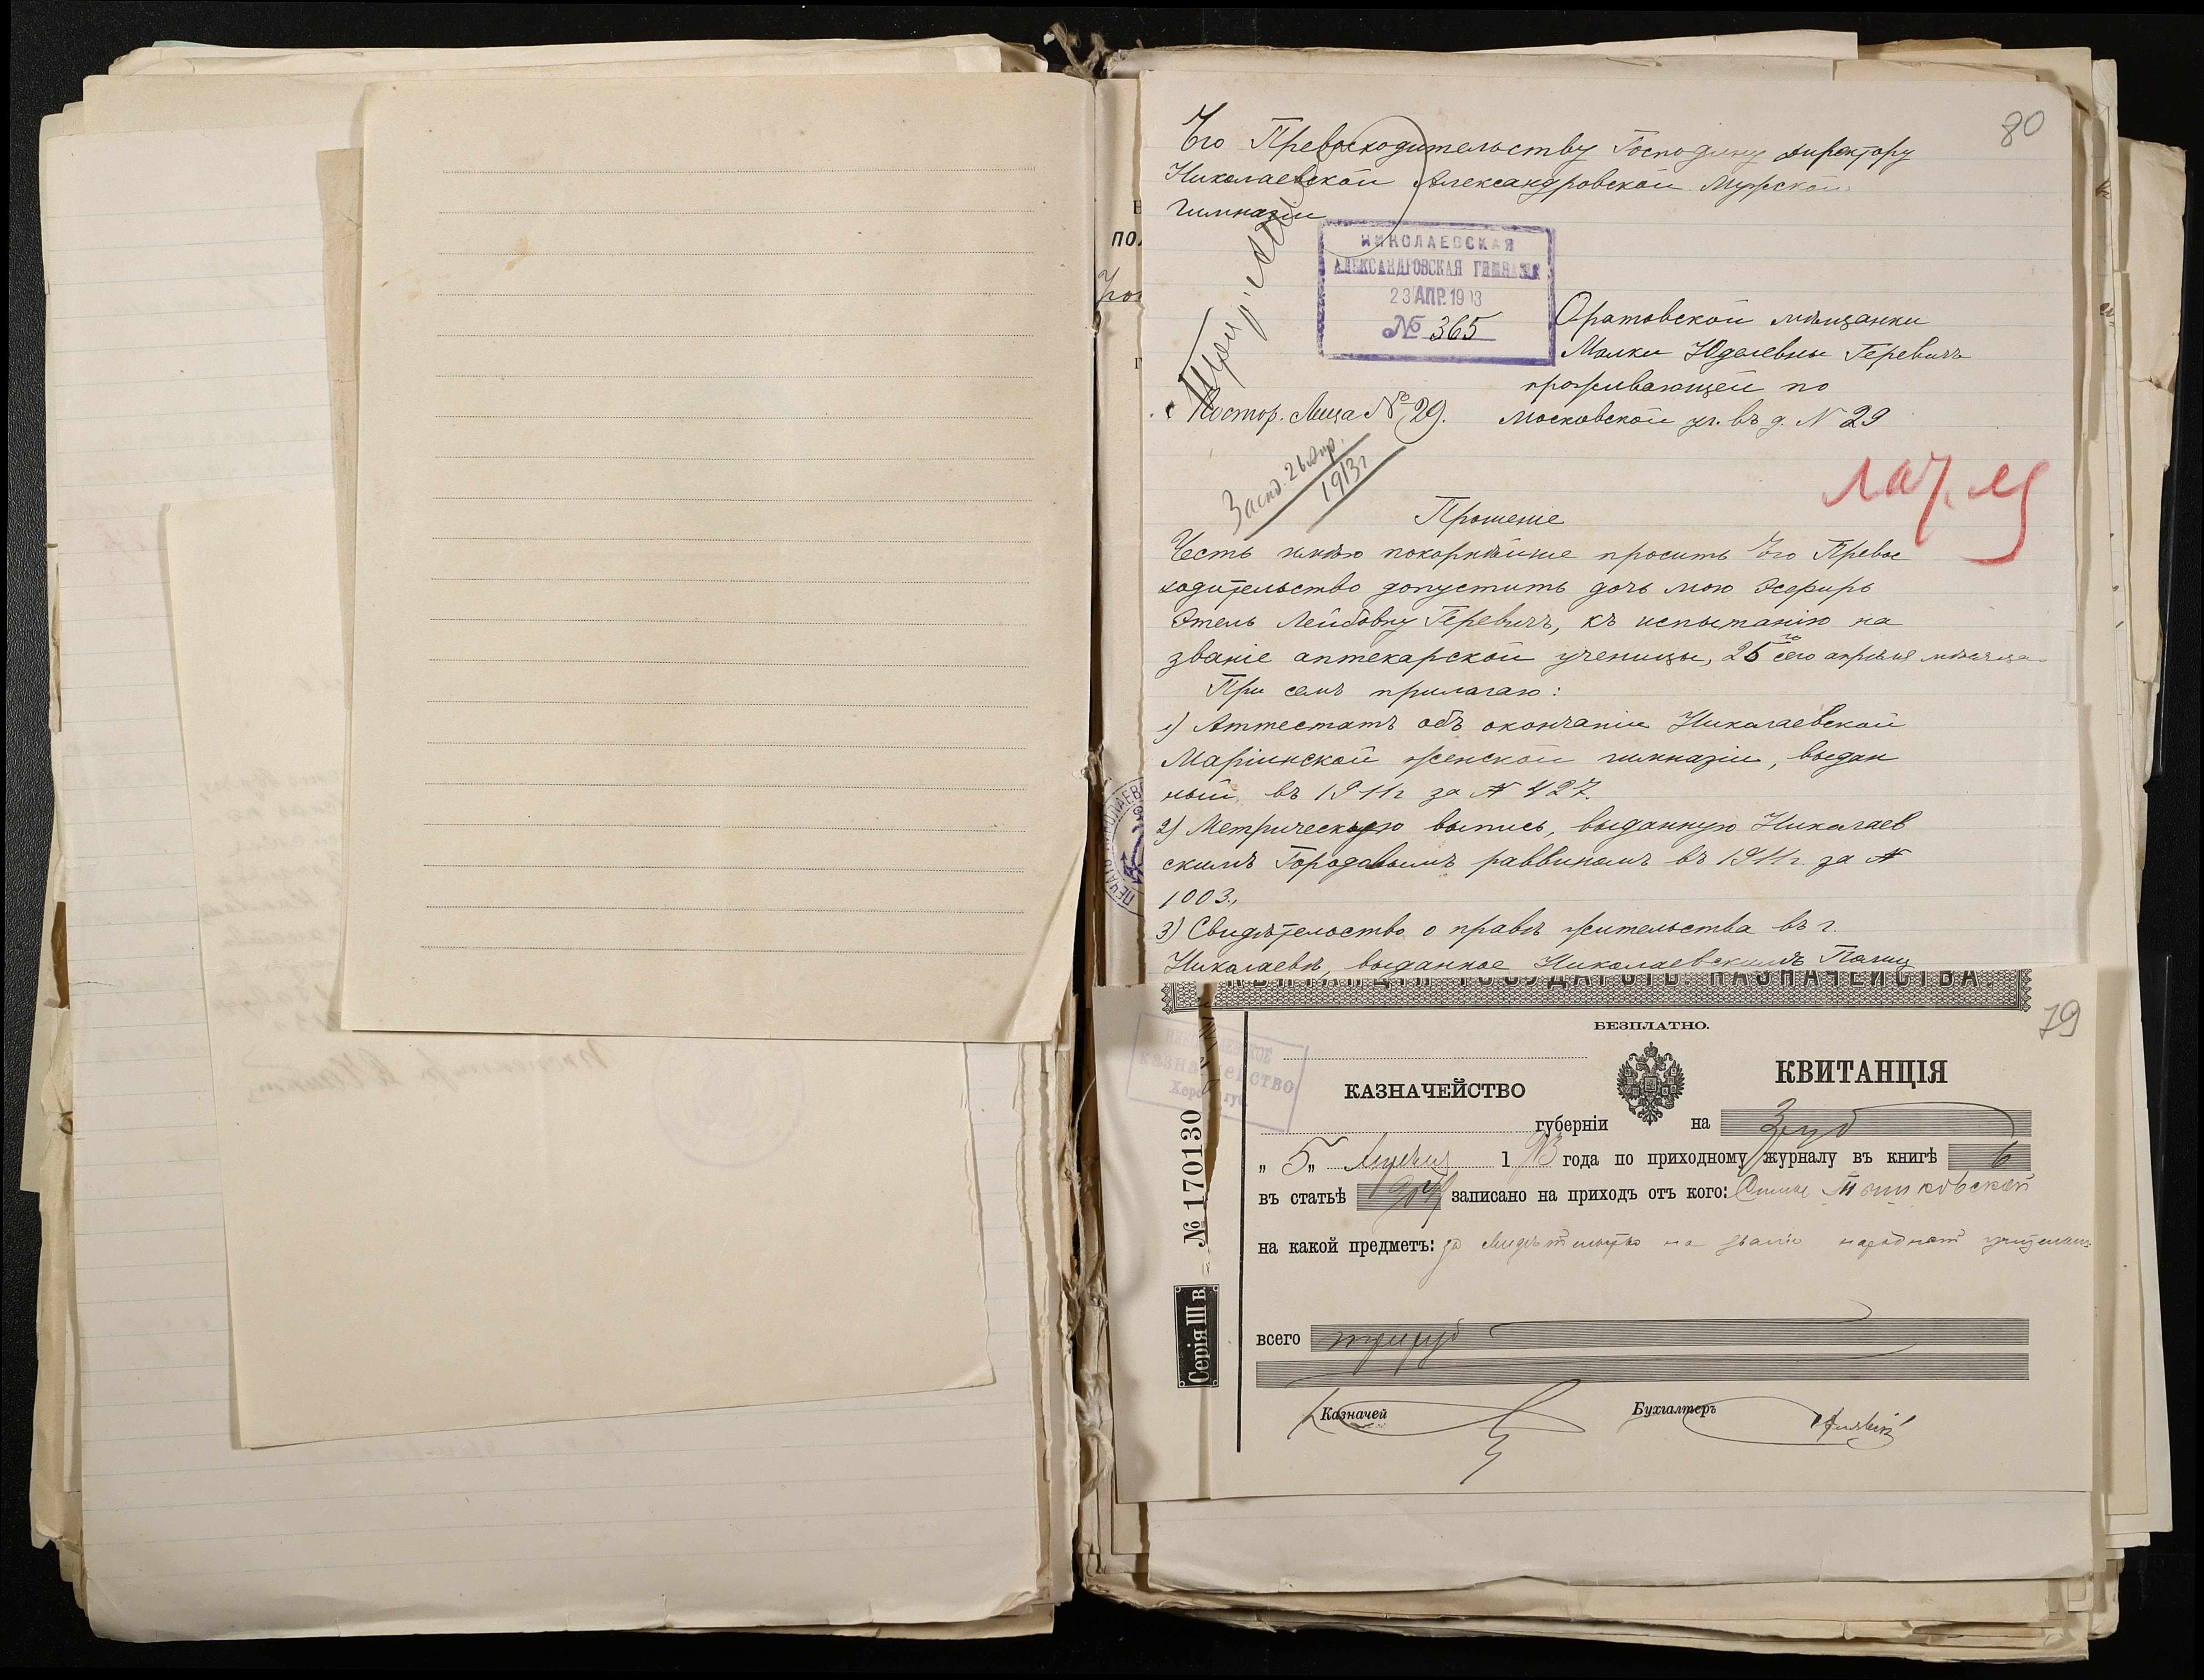 80
Его Превосходительству Господину Директору
Николаевской Александровской Мужской
гимназіи
НИКОЛАЕВСКАЯ
АЛЕКСАНДРОВСКАЯ ГИМНАЗІЯ
23 АПР. 1913
№ 365
Оратовской мѣщанки
Малки Юделевны Геревичъ
проживающей по
Московской ул. въ д. N 29
Постор. Лица № 29.
Засѣд. 26 Апр.
1913 г
Прошеніе
Честь имѣю покорнѣйше просить Его Превос
ходительство допустить дочь мою Эсфирь
Этель Лейбовну Геревичъ, къ испытанію на
званіе аптекарской ученицы, 25 го сего апрѣля мѣсяца
При семъ прилагаю:
1) Аттестатъ объ окончаніи Николаевской
Маріинской женской гимназіи, выдан
ный въ 1911 г за N 427.
2) Метрическую выпись, выданную Николаев
скимъ Городовымъ раввиномъ въ 1911 г. за N
1003.,
3) Свидѣтельство о правѣ жительства въ г.
Николаевѣ, выданное Николаевскимъ Полиц
КВИТАНЦІЯ ГОСУДАРСТВ. НАЗНАЧЕЙСТВА.
79
БЕЗПЛАТНО.
КАЗНАЧЕЙСТВО
КВИТАНЦІЯ
губерніи на 3 руб
„ 5 „ Апрѣля 1913 года по приходному журналу въ книгѣ 6
въ статьѣ записано на приходъ отъ кого:
на какой предметъ: за свидѣтельство на званіе народной учительницы
всего три руб
Казначей Бухгалтеръ
№ 170130
Серія III В.